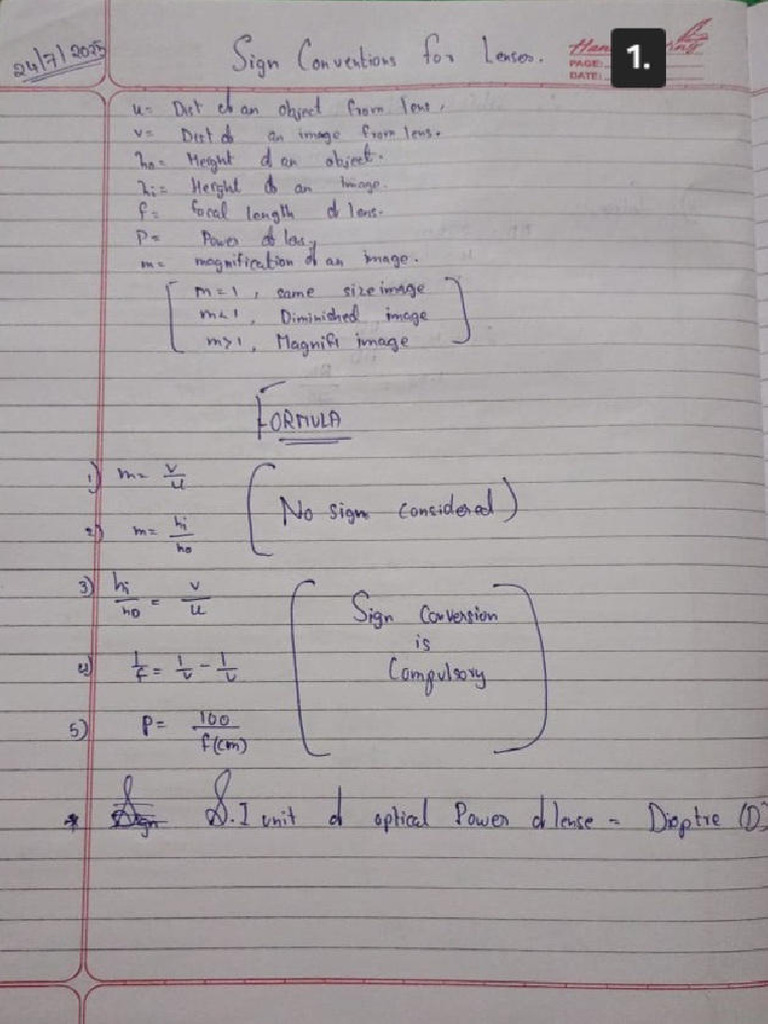 24/7/2025
Sign Conventions for Lenses.
1.
PAGE:
DATE:
u = Dist of an object from lens.
v = Dist of an image from lens.
ho = Height of an object.
hi = Height of an image.
f = focal length of lens.
P = Power of lens,
m = magnification of an image.
m = 1, same size image
m < 1, Diminished image
m > 1, Magnifi image
FORMULA
1) m = v/u
(No sign considered)
2) m = hi/ho
3) hi/ho = v/u
Sign Conversion
is
Compulsory
4) 1/f = 1/v - 1/u
5) P = 100/f(cm)
* Sign S.I unit of optical Power of lense = Dioptre (D)